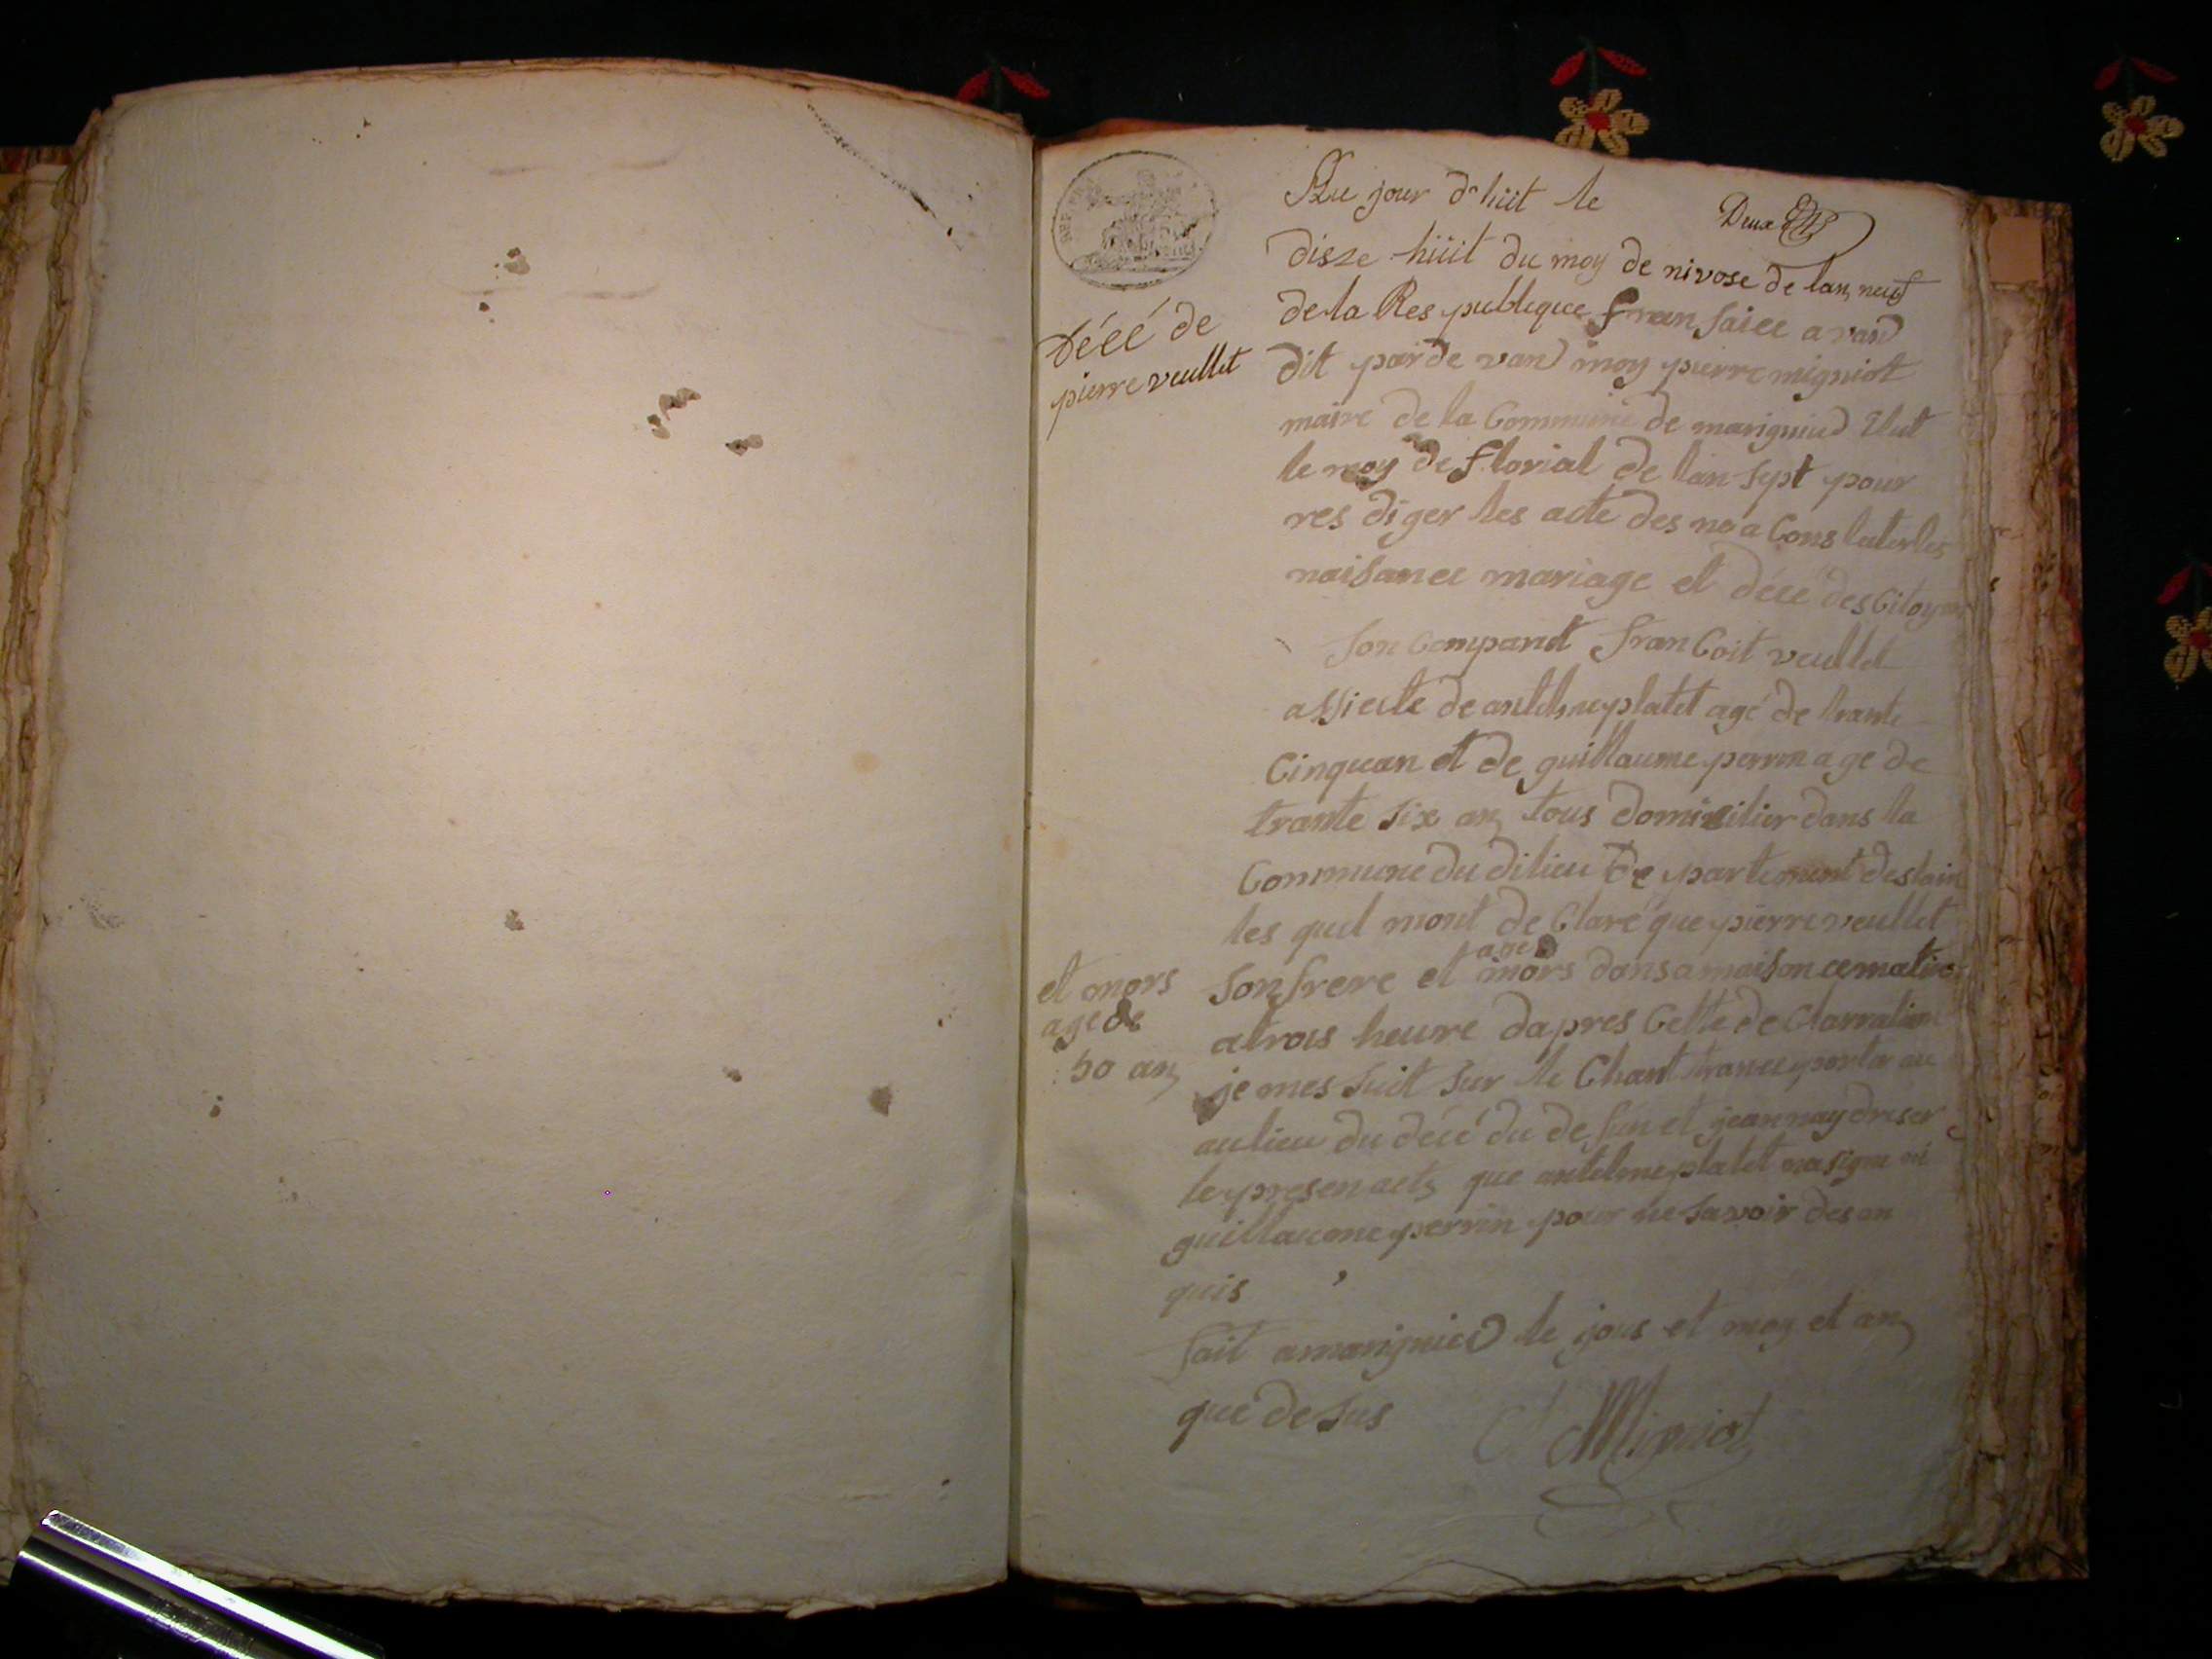 Au jour d'hüit le
Deux
disze hüit du moy de nivose de lan neuf
de la Res publique franſaiee a vand
décé de
pierre veullet
dit par de vand moy pierre migniot
maire de la Commune de marignied Elut
le moy de florial de llan sept pour
res diger les acte des no a Cons later les
naisanee mariage et décé des Citoyens
son Comparut franCoit veullet
assiecte de antelme platet agé de trante
Cinquan et de guillaume perrin age de
trante six an tous domicilier dans la
Commune du dilieu De partement deslain
les quel mont de Claré que pierre veullet
age
son frere et mors dansamaison cematin
et mors
age de
50 an
atrois heure dapres Cette de Clarration
je mes suit sur le Chant tranceporter au
aulieu du décé du defun et jeannay dreser
le presenacte que antelme platet na signe ni
guillaume perrin pour ne savoir desan
quis
fait amarignied le jous et moy et an
que desus
Migniot